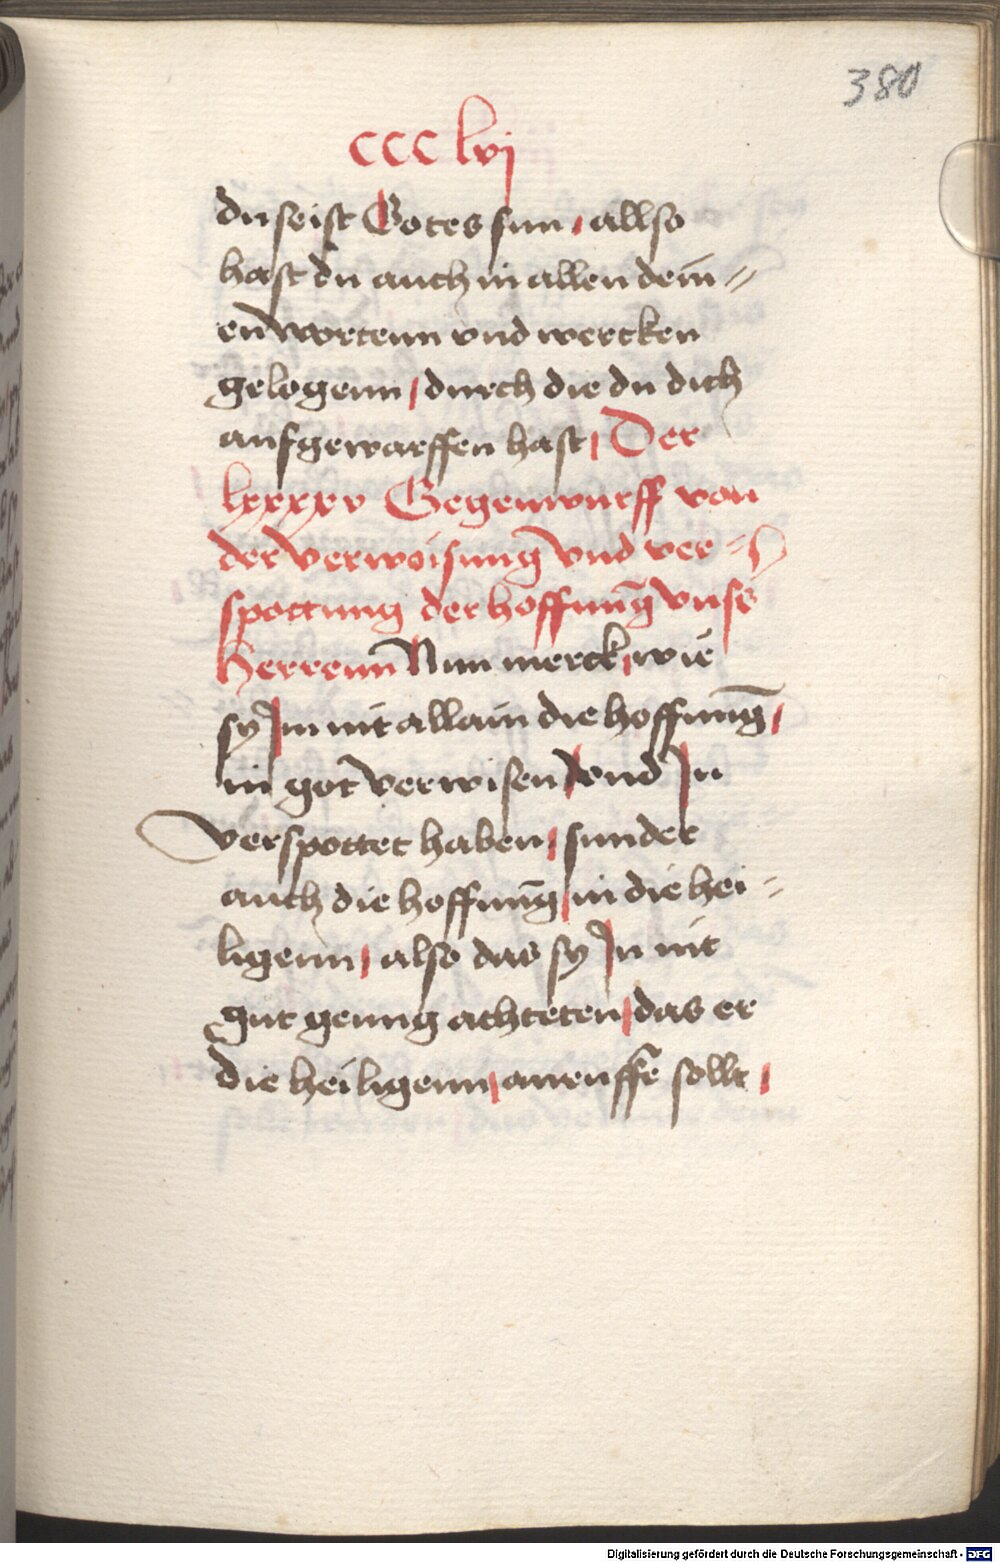 380
ccc lvj
du seist Gotes sun / allso
hast du auch in allen dein=
en wortenn vnd wercken
gelogenn / durch die du dich
aufgewarffen hast / Der
lxxxxv Gegenwurff von
der verwoisung vnd ver=
spottung der hoffnūg vnsˢ
Herrenn Nun merck / wie
sy Jm nit allain die hoffnūg /
in got verwisen / vnd Jn
verspottet haben / sunder
auch die hoffnūg / in die hei=
ligenn / also das sy Jn nit
gut genug achteten / das er
die heiligenn / anruffē sollt /
Digitalisierung gefördert durch die Deutsche Forschungsgemeinschaft - DFG